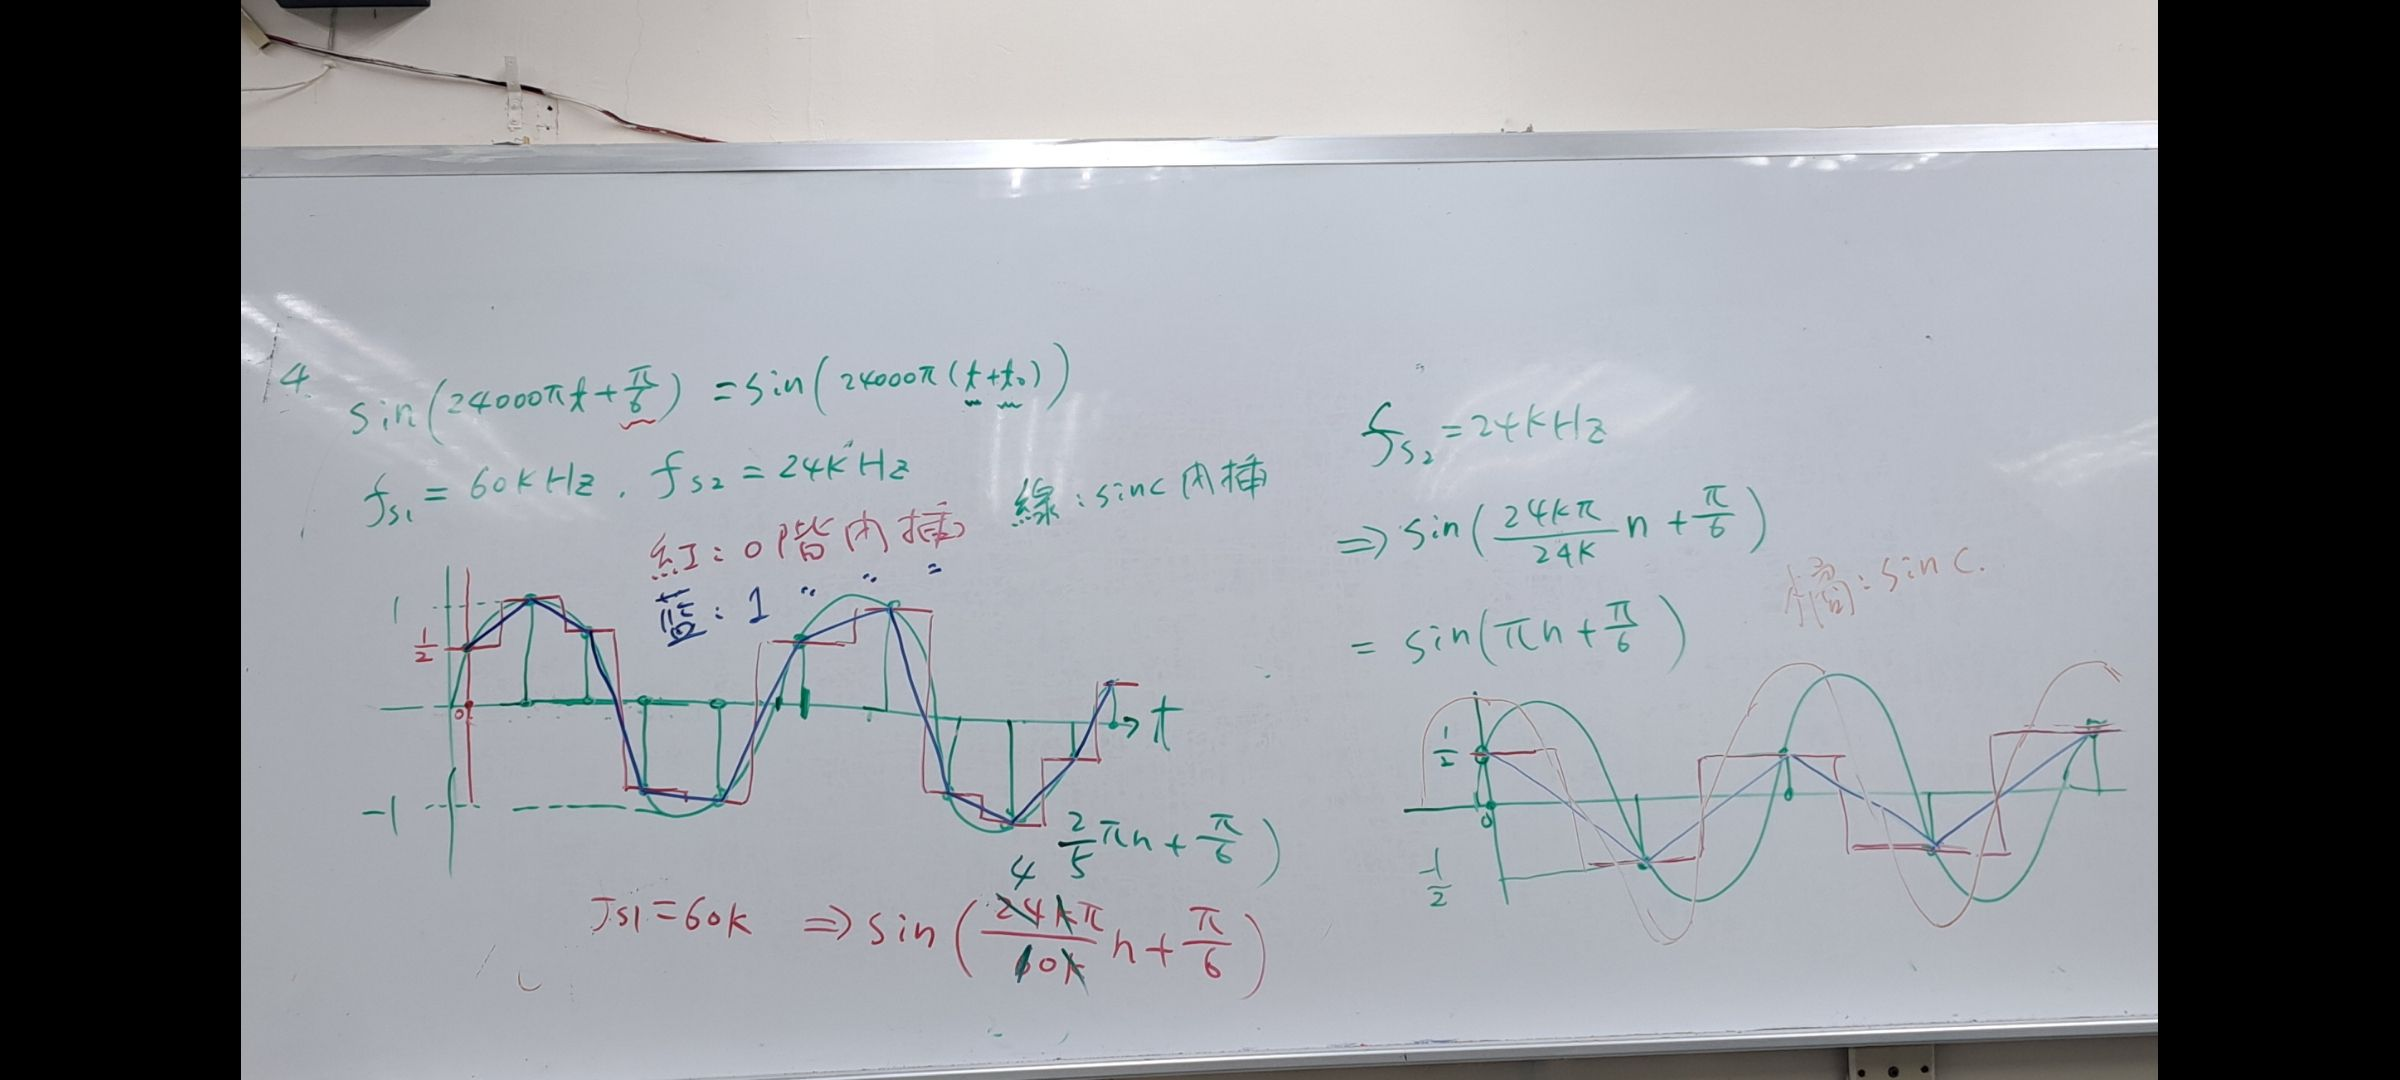 4.
sin(24000πt + π/6) = sin(24000π(t+t₀))
fs₁ = 60KHz, fs₂ = 24KHz
紅:0階内插
綠:sinc内插
藍:1 〃 〃 〃
1
1/2
0
-1
t
2/5 πn + π/6)
4
fs1=60k ⇒ sin(24kπ/60k n + π/6)
fs₂ = 24KHz
⇒ sin(24kπ/24k n + π/6)
橘:sinc.
= sin(πn + π/6)
1/2
0
-1/2